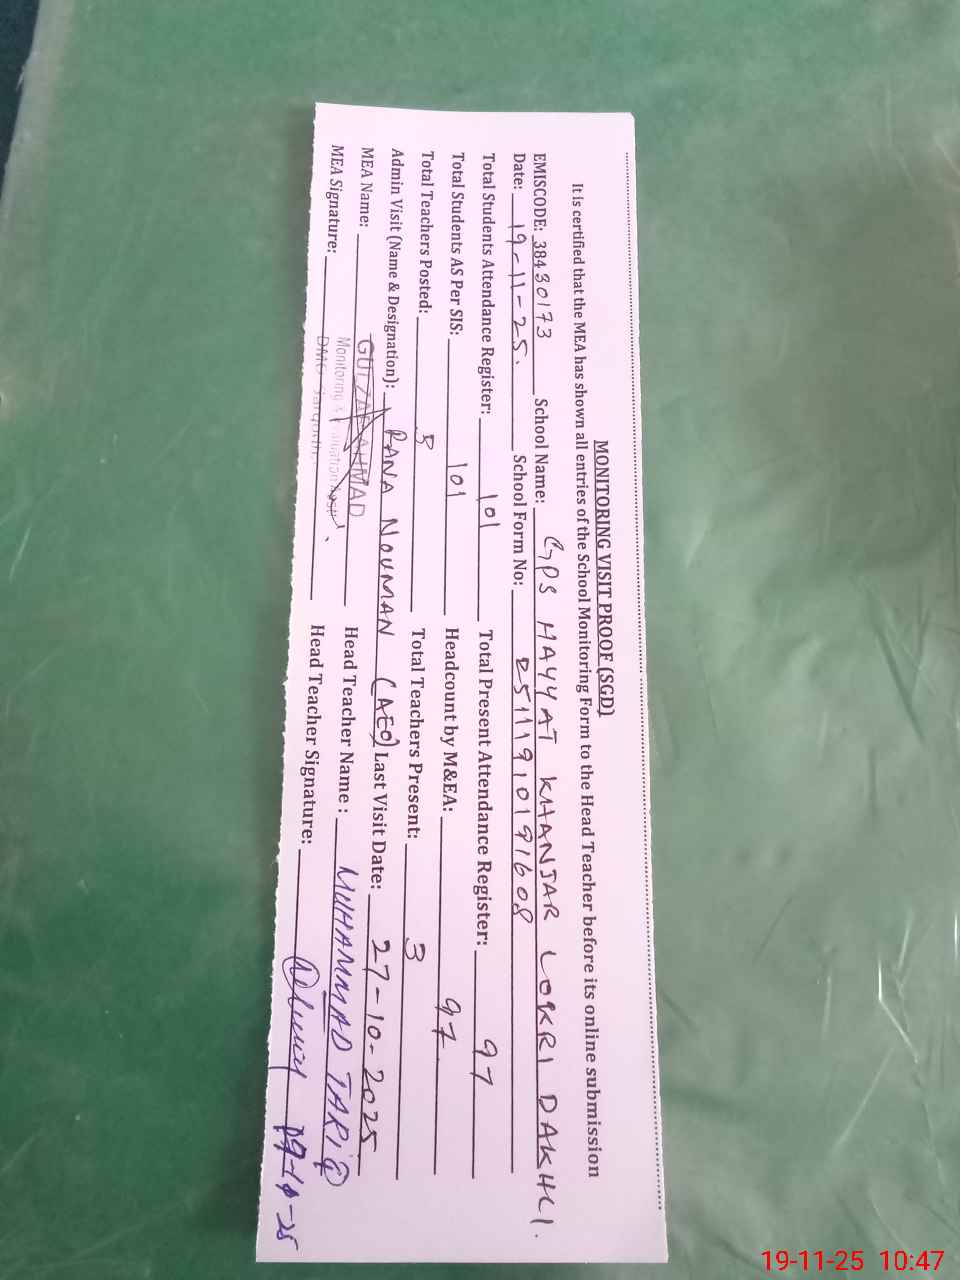 MONITORING VISIT PROOF (SGD)
It is certified that the MEA has shown all entries of the School Monitoring Form to the Head Teacher before its online submission
EMISCODE: 38430173 School Name: GPS HAYYAT KHANJAR LOKRI DAKHLI.
Date: 19-11-25. School Form No: 25111910191608
Total Students Attendance Register: 101 Total Present Attendance Register: 97
Total Students AS Per SIS: 101 Headcount by M&EA: 97
Total Teachers Posted: Total Teachers Present: 3
Admin Visit (Name & Designation): RANA NOUMAN (AEO) Last Visit Date: 27-10-2025
MEA Name: GULZAR AHMAD Head Teacher Name : MUHAMMAD TARIQ
Monitoring &
MEA Signature: DMO Sargodha Head Teacher Signature:
19-11-25 10:47